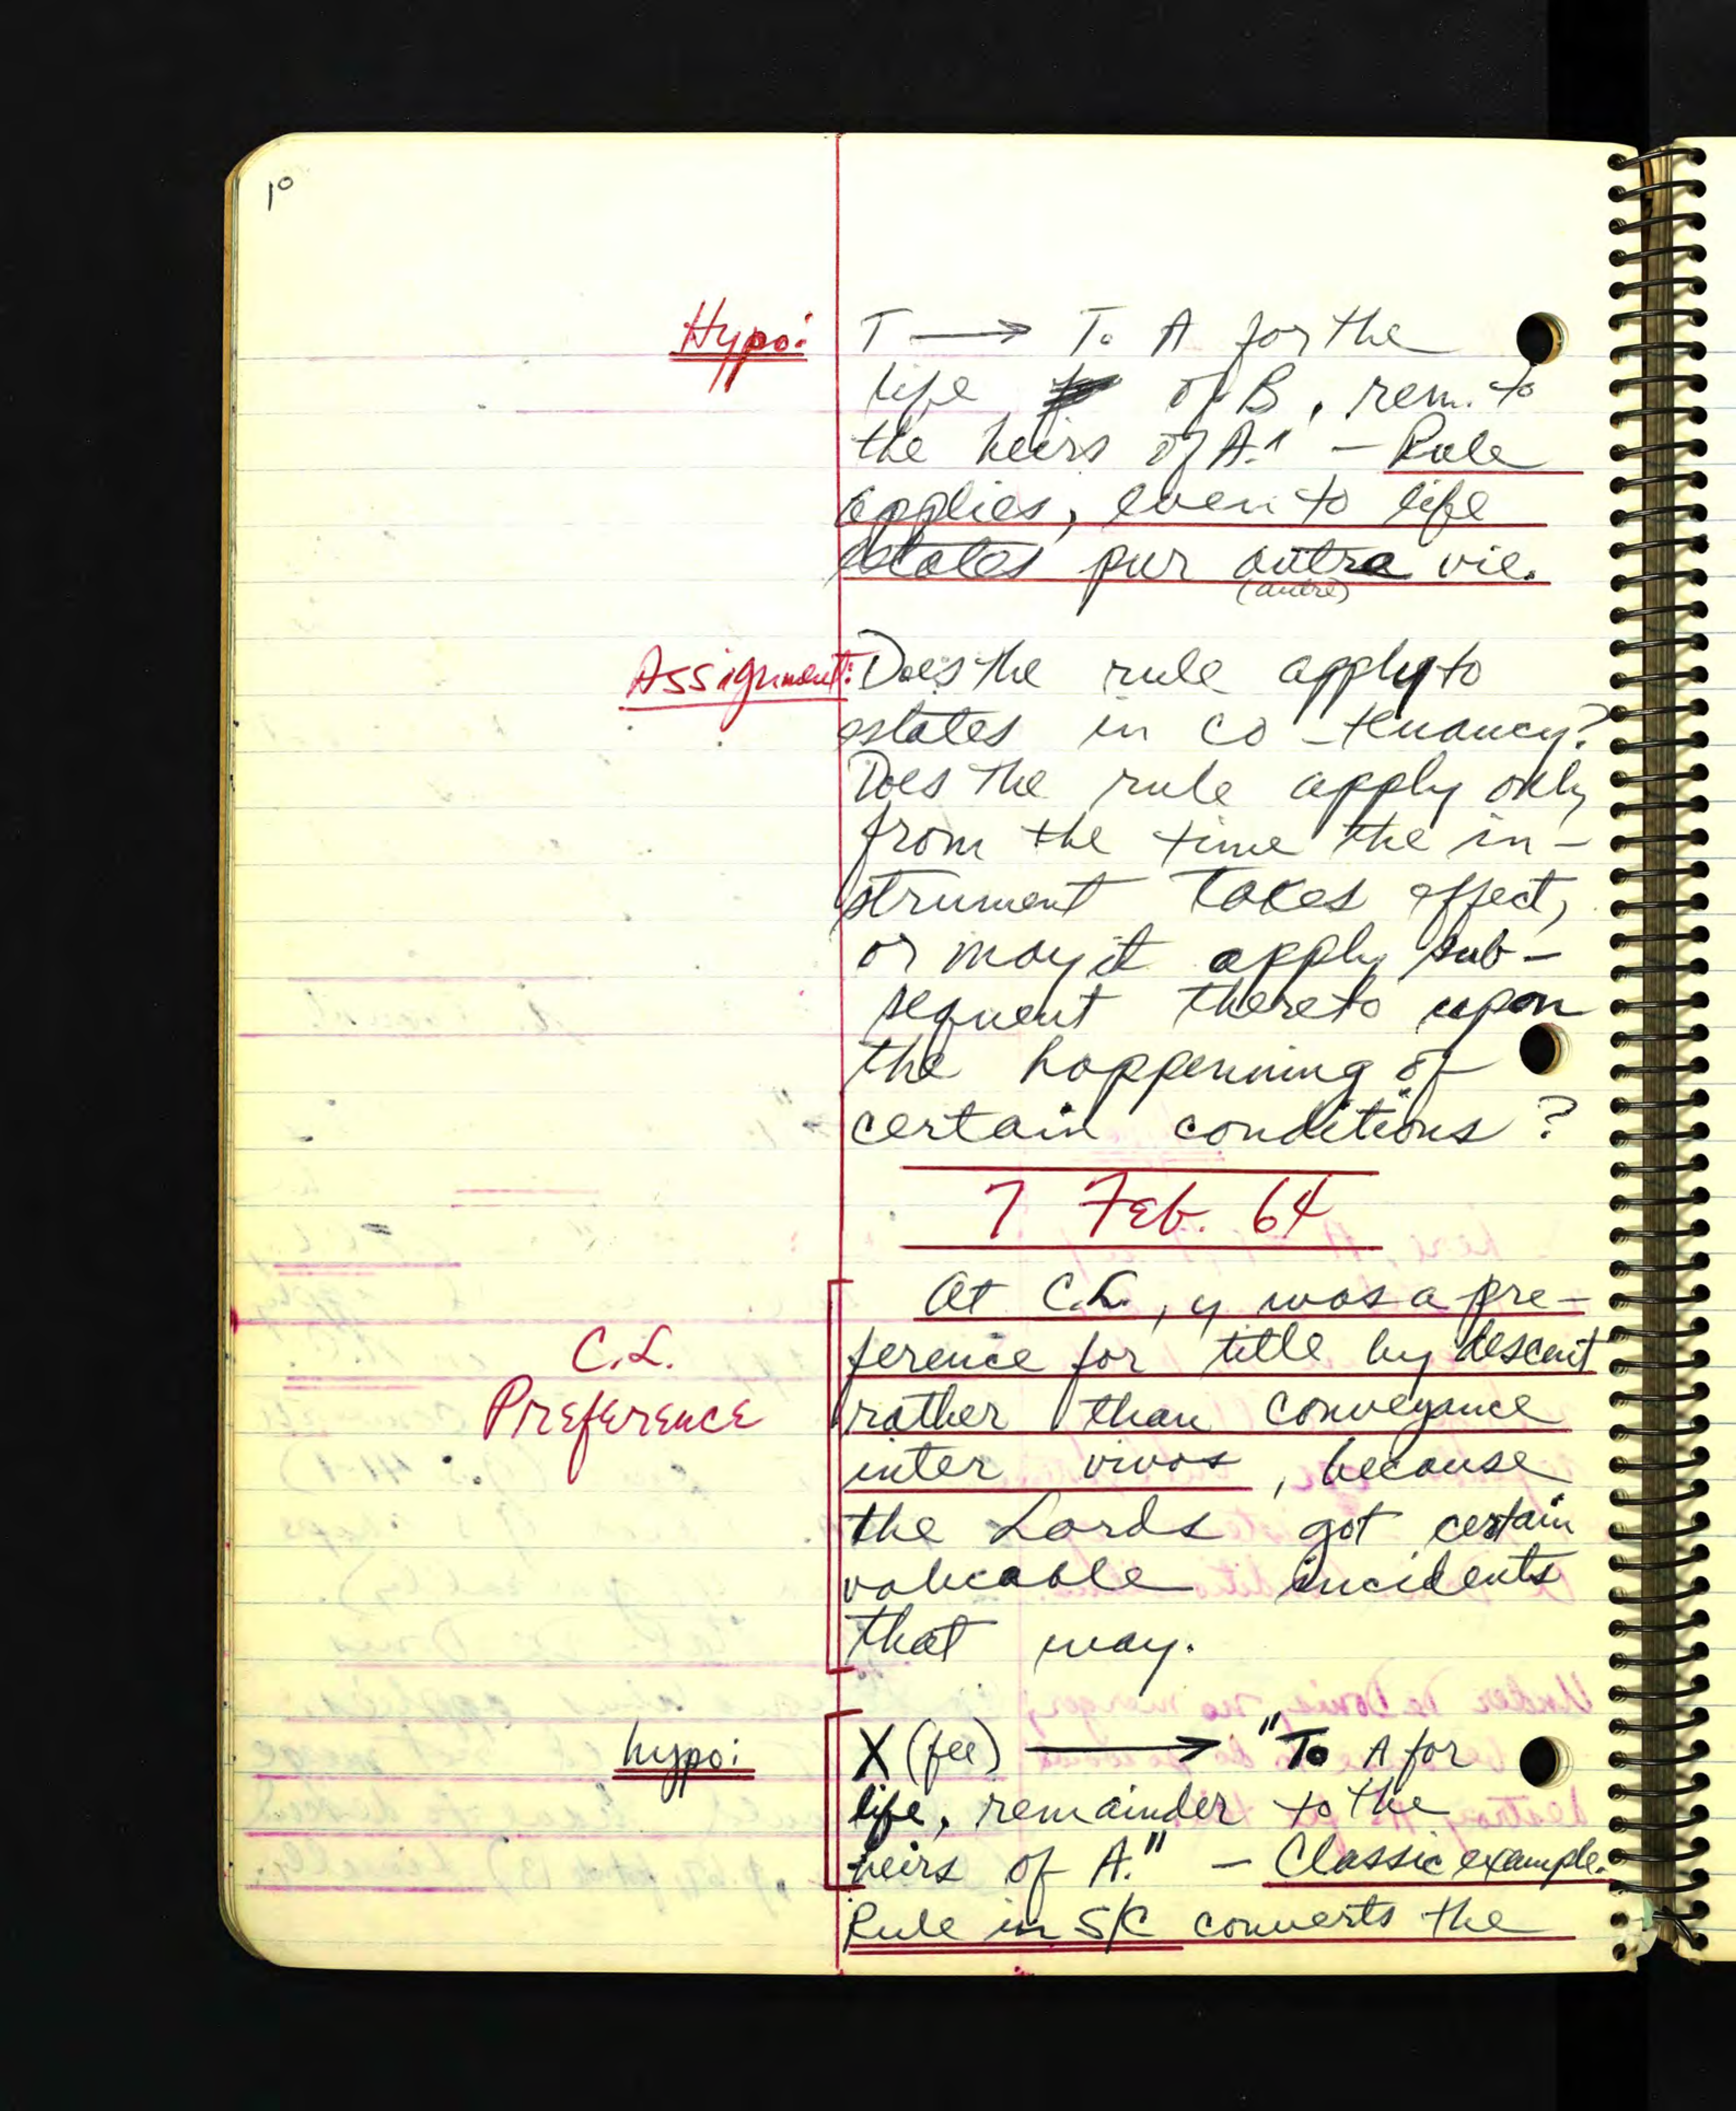 10
Hypo: T → To A for the
life of B, rem. to
the heirs of A." – Rule
applies, even to life
estates pur autre vie.
(autre)
Assignment: Does the rule apply to
estates in co-tenancy?
Does the rule apply only
from the time the in-
strument takes effect,
or may it apply sub-
sequent thereto upon
the happenning of
certain conditions?
7 Feb. 64
At C.L., y was a pre-
C.L. ference for title by descent
Preference rather than conveyance
inter vivos, because
the Lords got certain
valuable incidents
that way.
hypo: X (fee) → "To A for
life, remainder to the
heirs of A." – Classic example.
Rule in S/C converts the